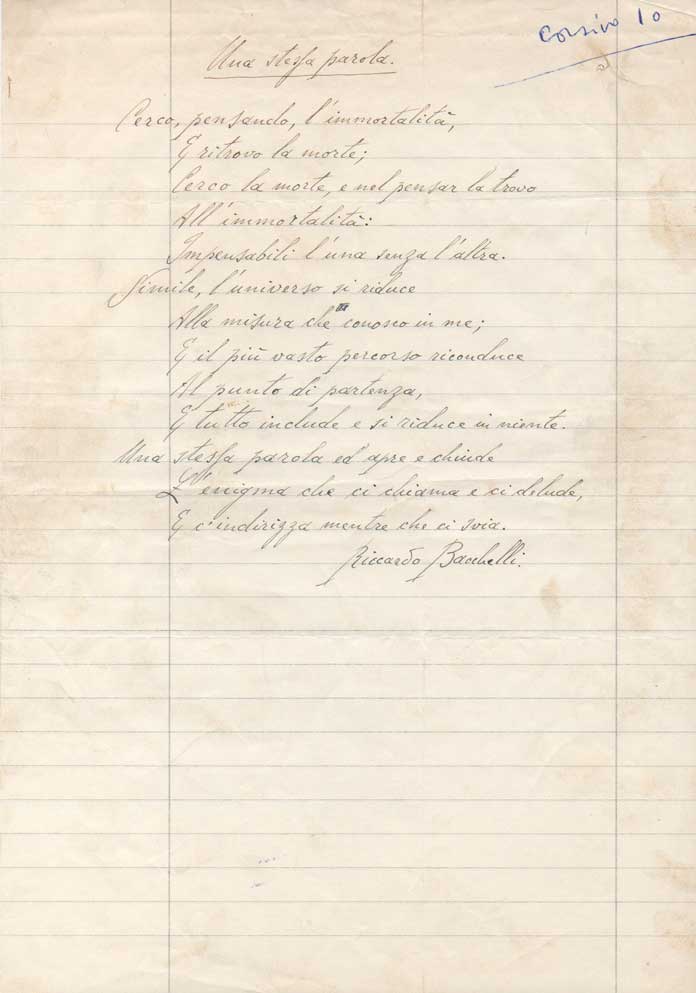 Corsivo 10
Una stessa parola.
Cerco, pensando, l'immortalità,
E ritrovo la morte;
Cerco la morte, e nel pensar la trovo
All'immortalità:
Impensabili l'una senza l'altra.
Simile, l'universo si riduce
Alla misura che conosco in me;
E il più vasto percorso riconduce
Al punto di partenza,
E tutto include e si riduce in niente.
Una stessa parola ed apre e chiude
L'enigma che ci chiama e ci delude,
E c'indirizza mentre che ci svia.
Riccardo Bacchelli.